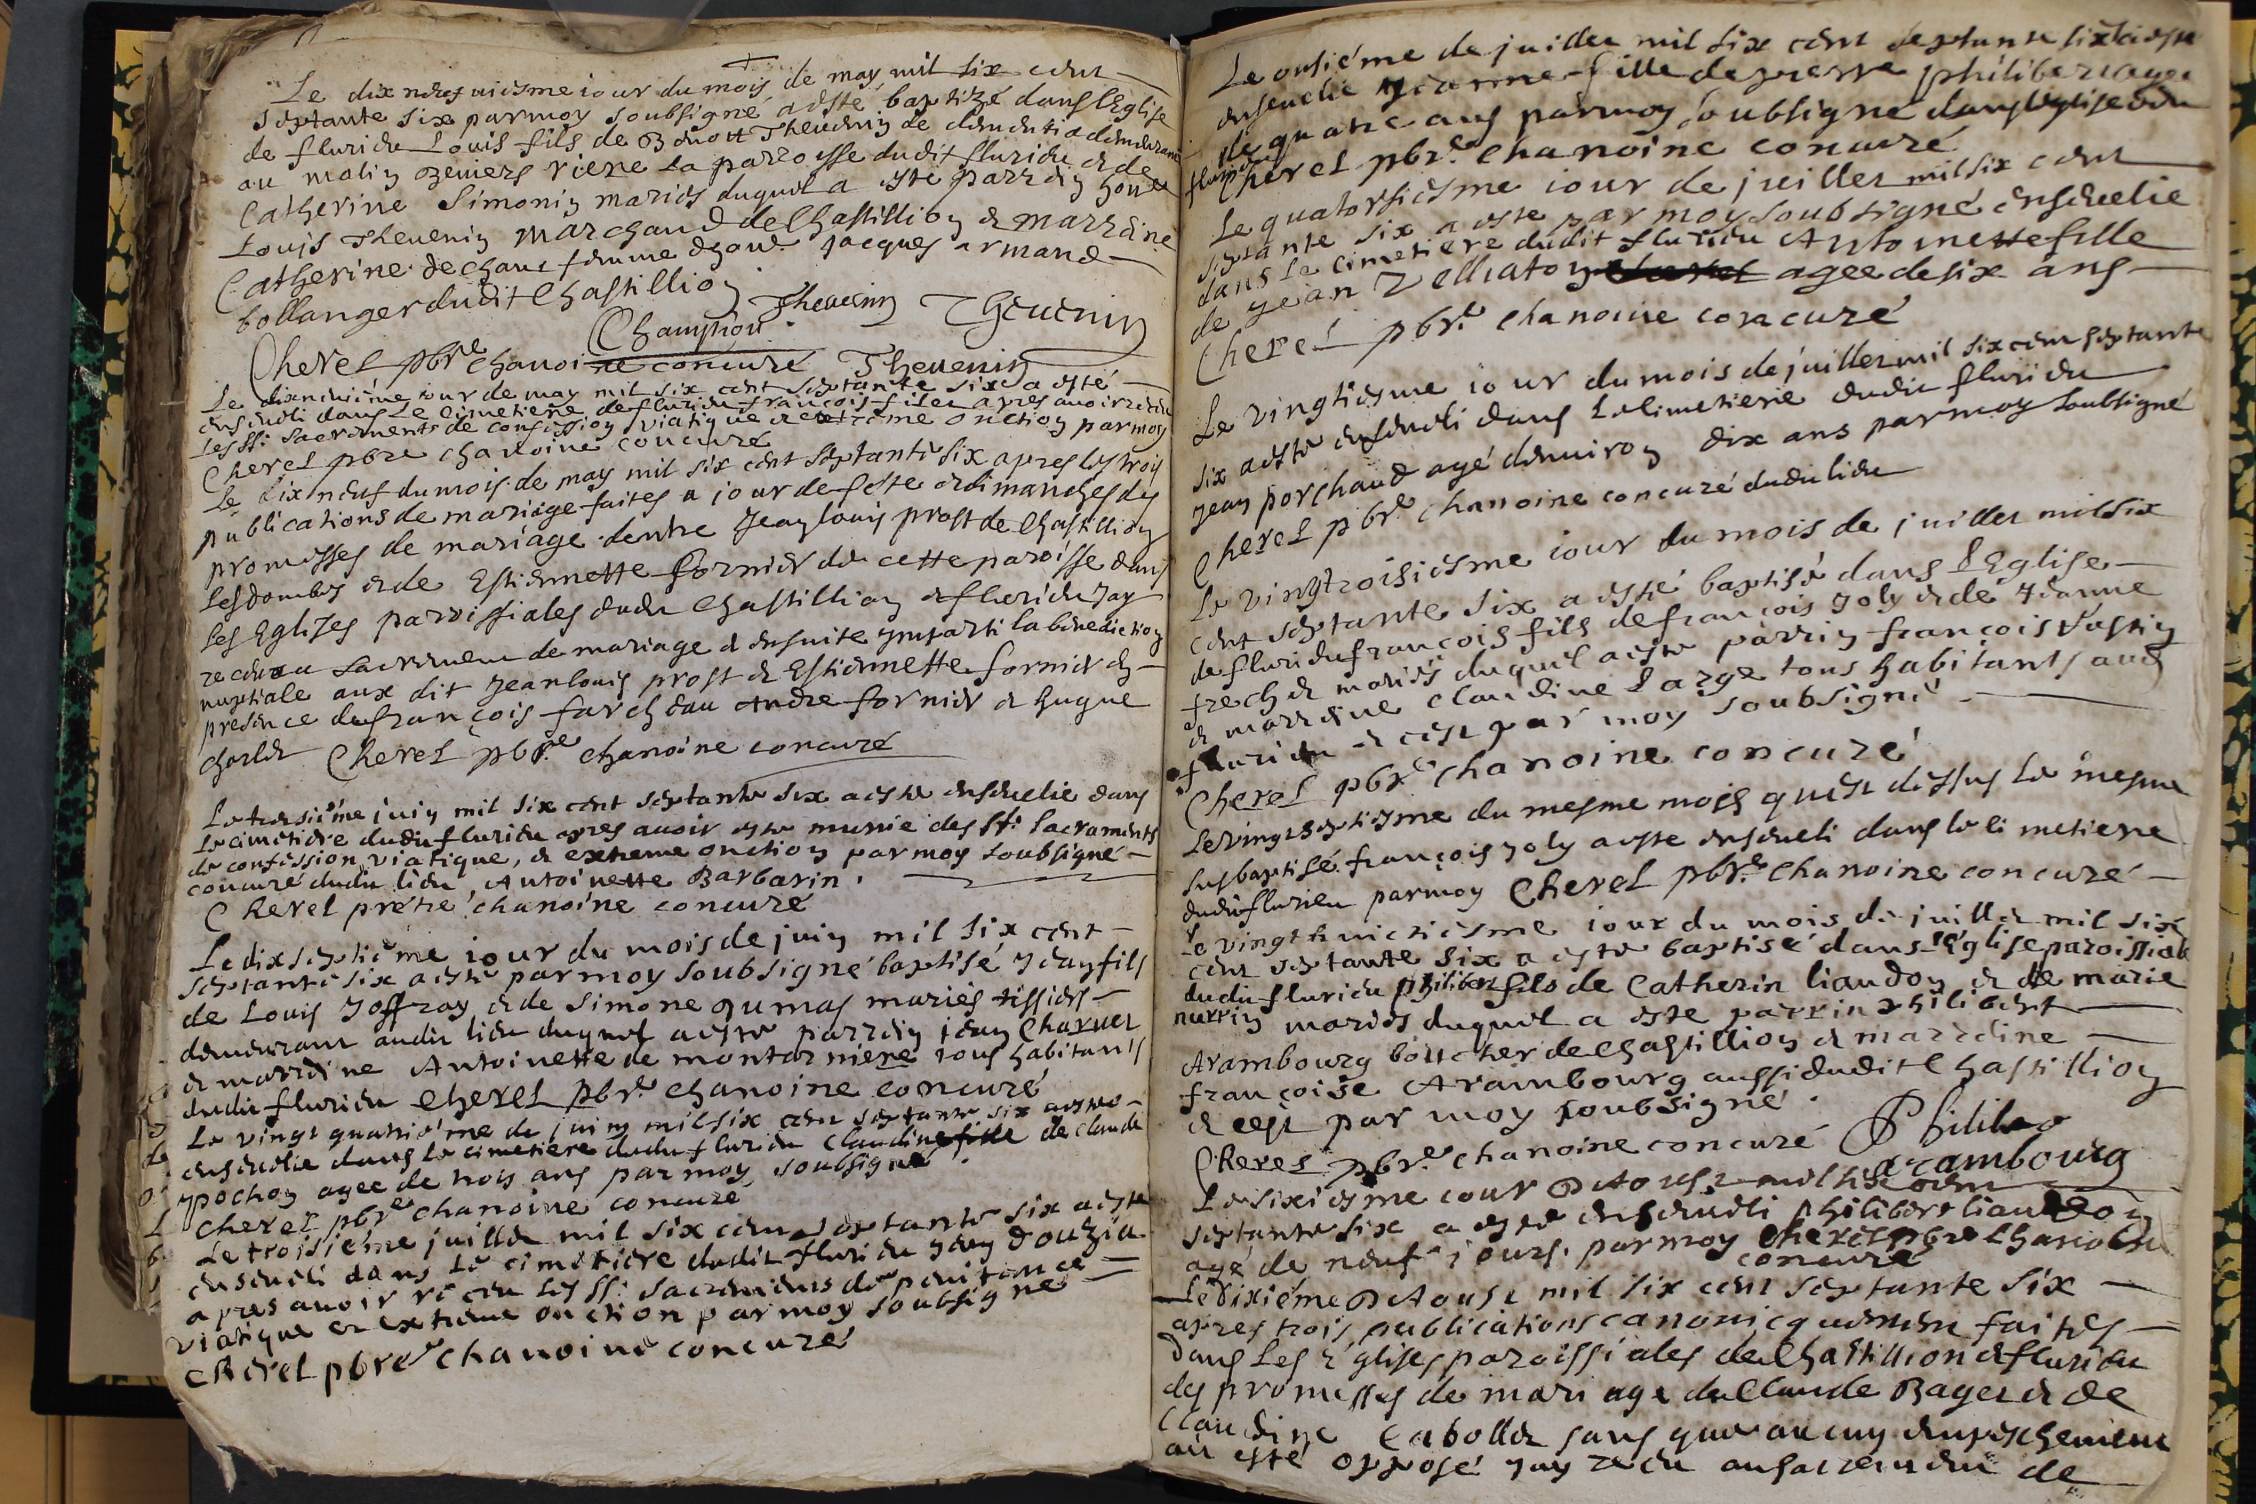 Le dix neufuiesme iour du mois de may mil six cent
septante six par moy soubsigné a esté baptizé dans l'Eglise
de flurieu Louis fils de Benoit Thevenin de demeurant
au molin riere la parroisse dudit flurieu et de
Catherine Simonin mariés duquel a esté parrein honle
Louis Thevenin marchand de Chastillion et marraine
Catherine dechaut femme d'hon. Jacques armand
bollanger dudit Chastillion
Thevenin Thevenin
Champion
Cherel pbre chanoine concuré Thevenin
Le dixneuuiéme iour de may mil six cent septante six a esté
enseueli dans le cimetiere de flurieu francois apres auoir receu
les Sts sacrements de confession viatique et extreme onction par moy
Cherel pbre chanoine concuré
Le dix neuf du mois de may mil six cent septante six apres les trois
publications de mariage faites a iour de feste et dimanches des
promesses de mariage dentre Jean louis prost de Chastillion
les dombes et de Estiennette fornier de cette paroisse dans
les Eglises paroissiales dudit Chastillion et flurieu Jay
receu au sacrement de mariage et ensuite imparti la benediction
nuptiale aux dit Jean louis prost et Estiennette fornier en
presence de françois farcheau andre fornier et hugue
charlet Cherel pbre chanoine concuré
Le treiziéme juin mil six cent septante six a esté enseuelie dans
le cimetiere dudit flurieu apres auoir esté munie des Sts sacraments
de confession, viatique, et extreme onction par moy soubsigné
concuré dudit lieu, Antoinette Barbarin.
Cherel prétre chanoine concuré
Le dix septiéme iour du mois de juin mil six cent
septante six a esté par moy soubsigné baptisé Jean fils
de Louis Joffray et de Simone Dumas mariés tissiers
demeurant audit lieu duquel a esté parrein jean Charuet
et marreine Antoinette de montarniere tous habitants
dudit flurieu Cherel pbre chanoine concuré
Le vingt quatriéme de juin mil six cent septante six a esté
enseuelie dans le cimetiere dudit flurieu Claudine fille de claude
pochon agee de trois ans par moy soubsigné.
Cherel pbre chanoine concuré
Le troisiéme juillet mil six cent septante six a esté
enseueli dans le cimetiere dudit flurieu Jean Douzia
apres auoir receu les SS. sacremens de penitence
viatique et extreme onction par moy soubsigné
Cherel pbre chanoine concuré
Le onsiéme de juillet mil six cent septante six a esté
enseuelie Jeanne fille de pierre philibert agee
de quatre ans par moy soubsigné dans l'eglise dudit
flurieu
Cherel pbre chanoine concuré
Le quatorsiesme iour de juillet mil six cent
septante six a esté par moy soubsigné enseuelie
dans le cimetiere dudit flurieu Antoinette fille
de Jean agee de six ans
Cherel pbre chanoine concuré
Le vingtiesme iour du mois de juillet mil six cent septante
six a esté enseueli dans le cimetiere dudit flurieu
Jean porchaud agé denuiron dix ans par moy soubsigné
Cherel pbre chanoine concuré dudit lieu
Le vingtroisiesme iour du mois de juillet mil six
cent septante six a esté baptisé dans l'Eglise
de flurieu françois fils de françois Joly et de Jeanne
frech et mariés duquel a esté parrin françois Vastin
et marreine Claudine Large tous habitants aud
flurieu et cest par moy soubsigné
Cherel pbre chanoine concuré
Le vingt septiesme du mesme mois quiest dessus le mesme
susbaptisé françois Joly a esté enseueli dans le cimetiere
dudit flurieu par moy Cherel pbre chanoine concuré
Le vingt huictiesme iour du mois de juillet mil six
cent septante six a esté baptisé dans l'Eglise paroissiale
dudit flurieu philibert fils de Catherin liaudon et de marie
nurrin mariés duquel a esté parrin philibert
Arambourg boucher de Chastillion et marreine
françoise Arambourg aussi dudit Chastillion
et cest par moy soubsigné.
Cherel pbre chanoine concuré Philiber
arambourg
Le sixiesme iour D'Aoust mil six cent
septante six a esté enseueli philibert liaudon
agé de neuf iours. par moy Cherel pbre chanoine
concuré
Le dixiéme D'Aoust mil six cent septante six
apres trois publications canonicquement faites
dans les Eglises paroissiales de Chastillion et flurieu
des promesses de mariage de Claude Bager et de
Claudine Cabollet sans que aucun empeschement
ait esté opposé Jay receu au sacrement de